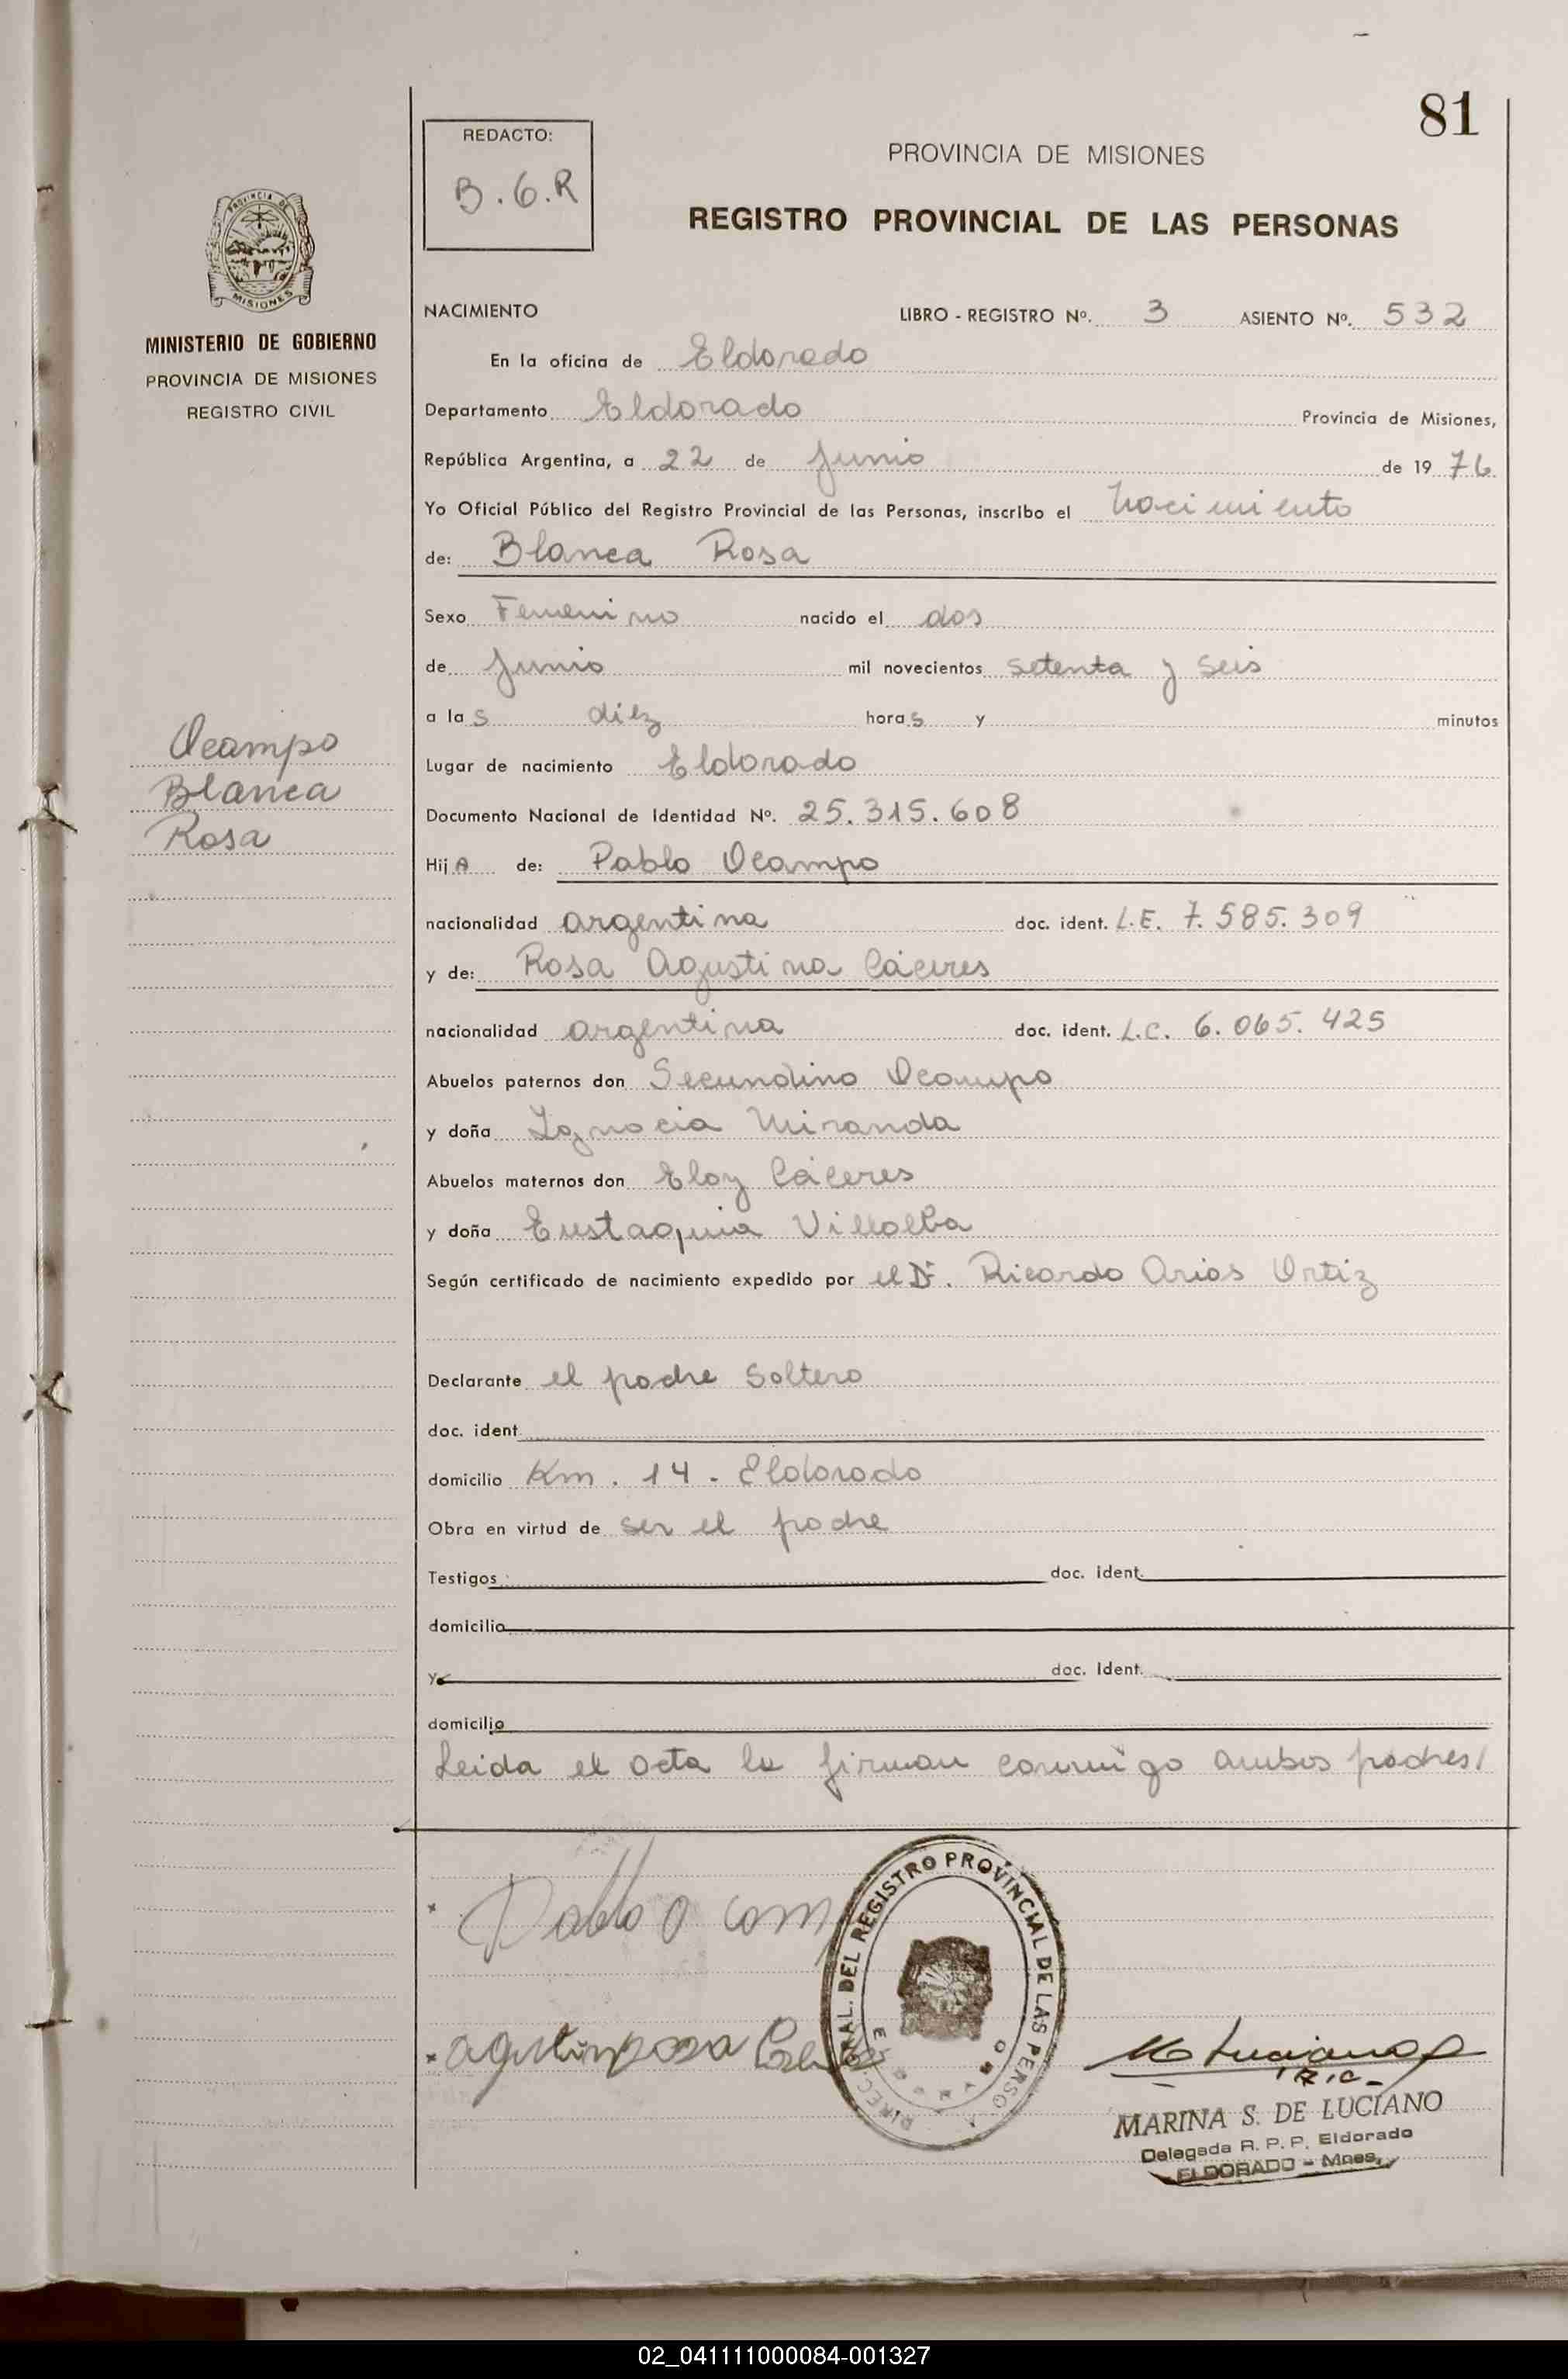 81
REDACTO:
B.G.R
PROVINCIA DE MISIONES
REGISTRO PROVINCIAL DE LAS PERSONAS
PROVINCIA DE
MISIONES
MINISTERIO DE GOBIERNO
PROVINCIA DE MISIONES
REGISTRO CIVIL
Ocampo
Blanca
Rosa
NACIMIENTO LIBRO - REGISTRO Nº. 3 ASIENTO Nº. 532
En la oficina de Eldorado
Departamento Eldorado Provincia de Misiones,
República Argentina, a 22 de Junio de 1976
Yo Oficial Público del Registro Provincial de las Personas, inscribo el Nacimiento
de: Blanca Rosa
Sexo Femenino nacido el dos
de Junio mil novecientos setenta y seis
a las diez horas y minutos
Lugar de nacimiento Eldorado
Documento Nacional de Identidad Nº. 25.315.608
Hij A de: Pablo Ocampo
nacionalidad argentina doc. ident. L.E. 7.585.309
y de: Rosa Agustina Cáceres
nacionalidad argentina doc. ident. L.C. 6.065.425
Abuelos paternos don Secundino Ocampo
y doña Ignacia Miranda
Abuelos maternos don Eloy Cáceres
y doña Eustaquia Villalba
Según certificado de nacimiento expedido por el Dr. Ricardo Arias Ortiz
Declarante el padre Soltero
doc. ident
domicilio Km. 14 - Eldorado
Obra en virtud de ser el padre
Testigos doc. ident.
domicilio
y doc. ident.
domicilio
Leida el acta la firman conmigo ambos padres/
Pablo O com
DIREC. GRAL. DEL REGISTRO PROVINCIAL DE LAS PERSO
MARINA S. DE LUCIANO
Delegada R. P. P. Eldorado
ELDORADO - Mnes.
02_041111000084-001327